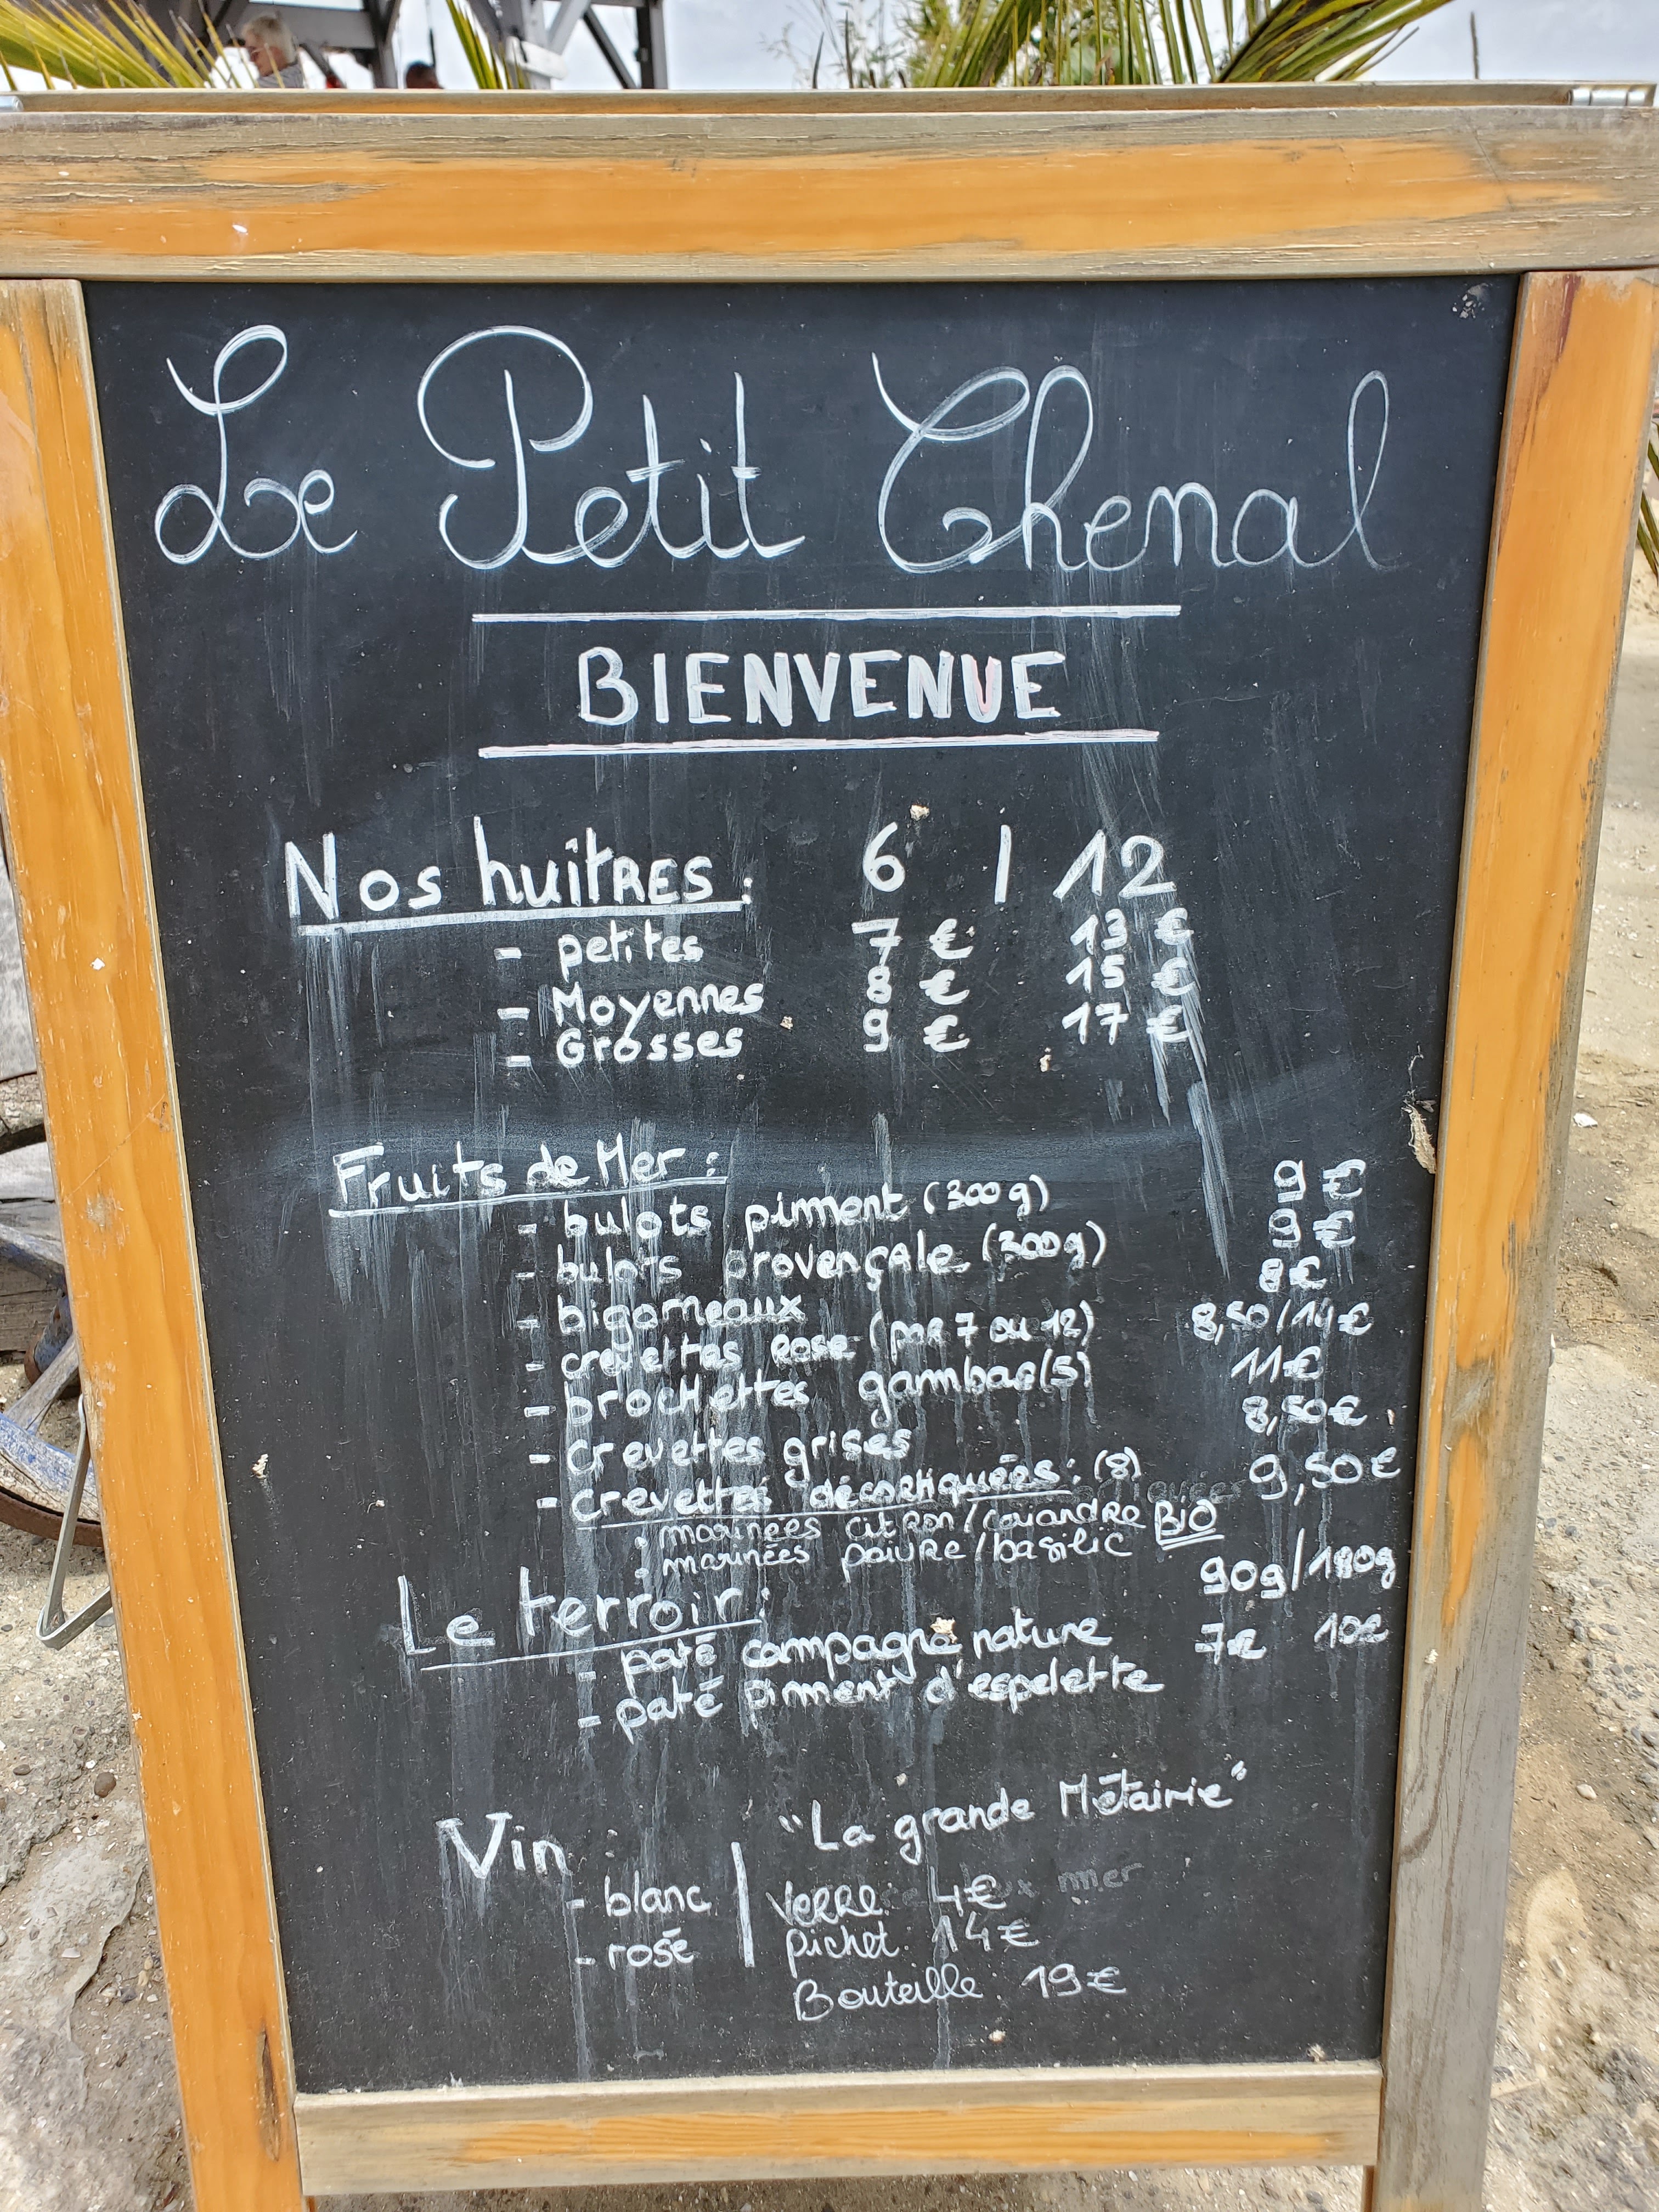 Le Petit Chenal
BIENVENUE
Nos huîtRES : 6 | 12
- petites 7 € 13 €
- Moyennes 8 € 15 €
- Grosses 9 € 17 €
Fruits de Mer :
- bulots piment (300 g) 9 €
- bulots provençAle (300g) 9 €
- bigorneaux 8€
- crevettes Rose (par 7 ou 12) 8,50/14€
- brochettes gambas(5) 11€
- crevettes grises 8,50€
- crevettes décortiquées : (8) 9,50€
. marinées citron/coriandRE BiO
. marinées poivRE/basilic
Le terroir : 90g/180g
- paté campagne nature 7€ 10€
- paté piment d'espelette
Vin : "La grande Métairie"
- blanc | VeRRE: 4€
- rosé pichet: 14€
Bouteille : 19€